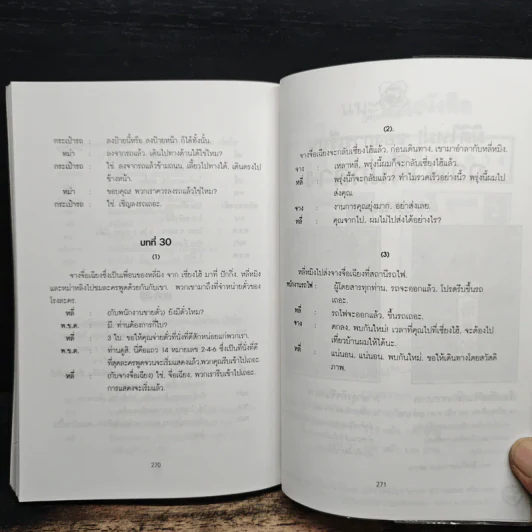 กระเป๋ารถ : ลงป้ายนี้หรือ ลงป้ายหน้า ก็ได้ทั้งนั้น.
หม่า : ลงจากรถแล้ว, เดินไปทางด้านใต้ใช่ไหม?
กระเป๋ารถ : ใช่. ลงจากรถแล้วข้ามถนน, เลี้ยวไปทางใต้, เดินตรงไป
ข้างหน้า.
หม่า : ขอบคุณ. พวกเราควรลงรถแล้วใช่ไหม?
กระเป๋ารถ : ใช่, เชิญลงรถเถอะ.
บทที่ 30
(1)
จางจื่อเฉียงซึ่งเป็นเพื่อนของหลี่ฉิง จาก เซี่ยงไฮ้ มาที่ ปักกิ่ง. หลี่หมิง
และหม่าหลิงไปชมละครพูดด้วยกันกับเขา. พวกเขามาถึงที่จำหน่ายตั๋วของ
โรงละคร.
หลี่ : (กับพนักงานขายตั๋ว) ยังมีตั๋วไหม?
พ.ข.ต. : มี. ท่านต้องการกี่ใบ?
หลี่ : 3 ใบ. ขอให้คุณจ่ายตั๋วที่นั่งที่ดีสักหน่อยแก่พวกเรา.
พ.ข.ต. : ท่านดูสิ. นี่คือแถว 14 หมายเลข 2-4-6 ซึ่งเป็นที่นั่งที่ดี
ที่สุดละครพูดจวนจะเริ่มแสดงแล้ว,พวกคุณรีบเข้าไปเถอะ.
หลี่ : (กับจางจื่อเฉียง) ใช่, จื่อเฉียง, พวกเรารีบเข้าไปเถอะ.
การแสดงจะเริ่มแล้ว.
270
(2).
จางจื่อเฉียงจะกลับเซี่ยงไฮ้แล้ว. ก่อนเดินทาง, เขามาอำลากับหลี่หมิง.
จาง : เหลาหลี่, พรุ่งนี้ผมก็จะกลับเซี่ยงไฮ้แล้ว.
หลี่ : พรุ่งนี้ก็จะกลับแล้ว? ทำไมรวดเร็วอย่างนี้? พรุ่งนี้ผมไป
ส่งคุณ.
จาง : งานการคุณยุ่งมาก, อย่าส่งเลย.
หลี่ : คุณจากไป, ผมไม่ไปส่งได้อย่างไร?
(3)
หลี่หมิงไปส่งจางจื่อเฉียงที่สถานีรถไฟ.
พนักงานรถไฟ : ผู้โดยสารทุกท่าน, รถจะออกแล้ว, โปรดรีบขึ้นรถ
เถอะ.
หลี่ : รถไฟจะออกแล้ว, ขึ้นรถเถอะ.
จาง : ตกลง, พบกันใหม่! เวลาที่คุณไปที่เซี่ยงไฮ้, จะต้องไป
เที่ยวบ้านผมให้ได้นะ.
หลี่ : แน่นอน, แน่นอน. พบกันใหม่, ขอให้เดินทางโดยสวัสดิ
ภาพ.
271